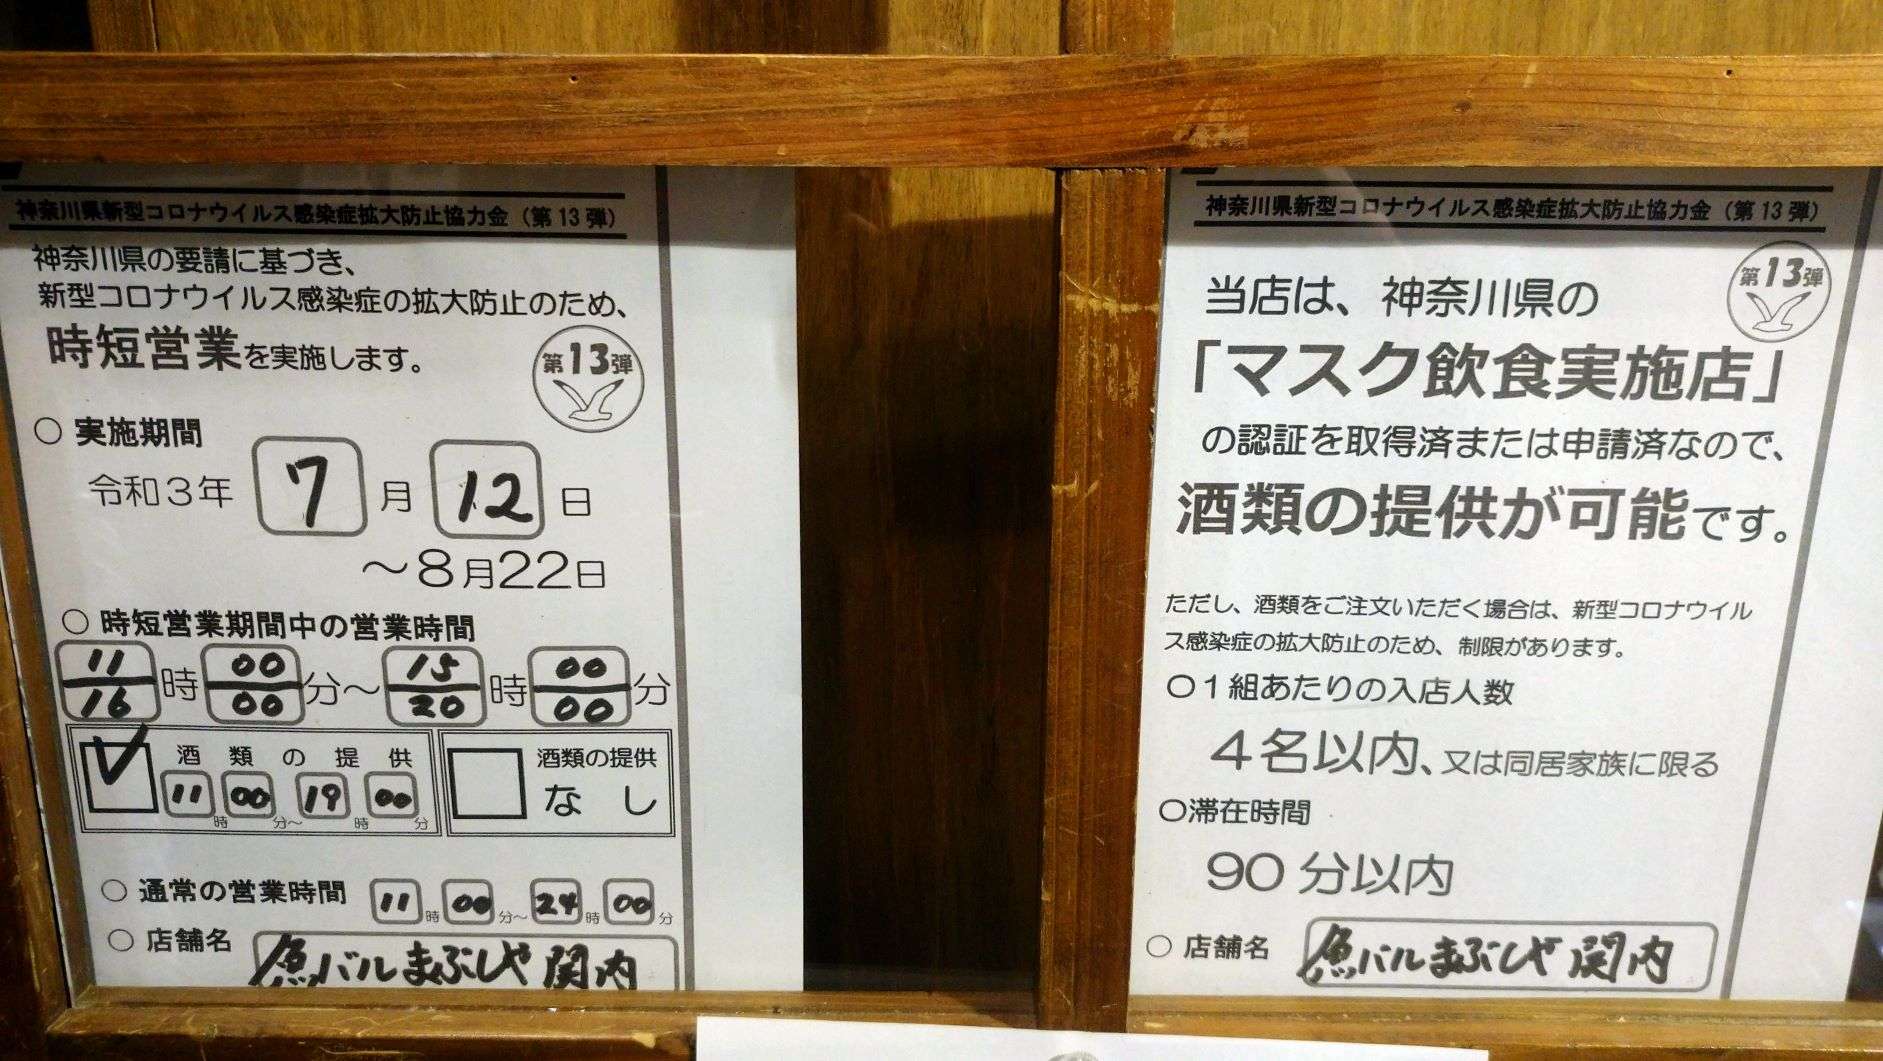 神奈川県新型コロナウイルス感染症拡大防止協力金（第13弾）
神奈川県の要請に基づき、
新型コロナウイルス感染症の拡大防止のため、
時短営業を実施します。
第13弾
○ 実施期間
令和3年 7 月 12 日
～8月22日
○ 時短営業期間中の営業時間
11 時 00 分～ 15 時 00 分
16 00 20 00
酒類の提供
11時00分～19時00分
酒類の提供
なし
○ 通常の営業時間 11時00分～24時00分
○ 店舗名 魚バルまぶしや関内
神奈川県新型コロナウイルス感染症拡大防止協力金（第13弾）
第13弾
当店は、神奈川県の
「マスク飲食実施店」
の認証を取得済または申請済なので、
酒類の提供が可能です。
ただし、酒類をご注文いただく場合は、新型コロナウイル
ス感染症の拡大防止のため、制限があります。
○1組あたりの入店人数
4名以内、又は同居家族に限る
○滞在時間
90分以内
○ 店舗名 魚バルまぶしや関内